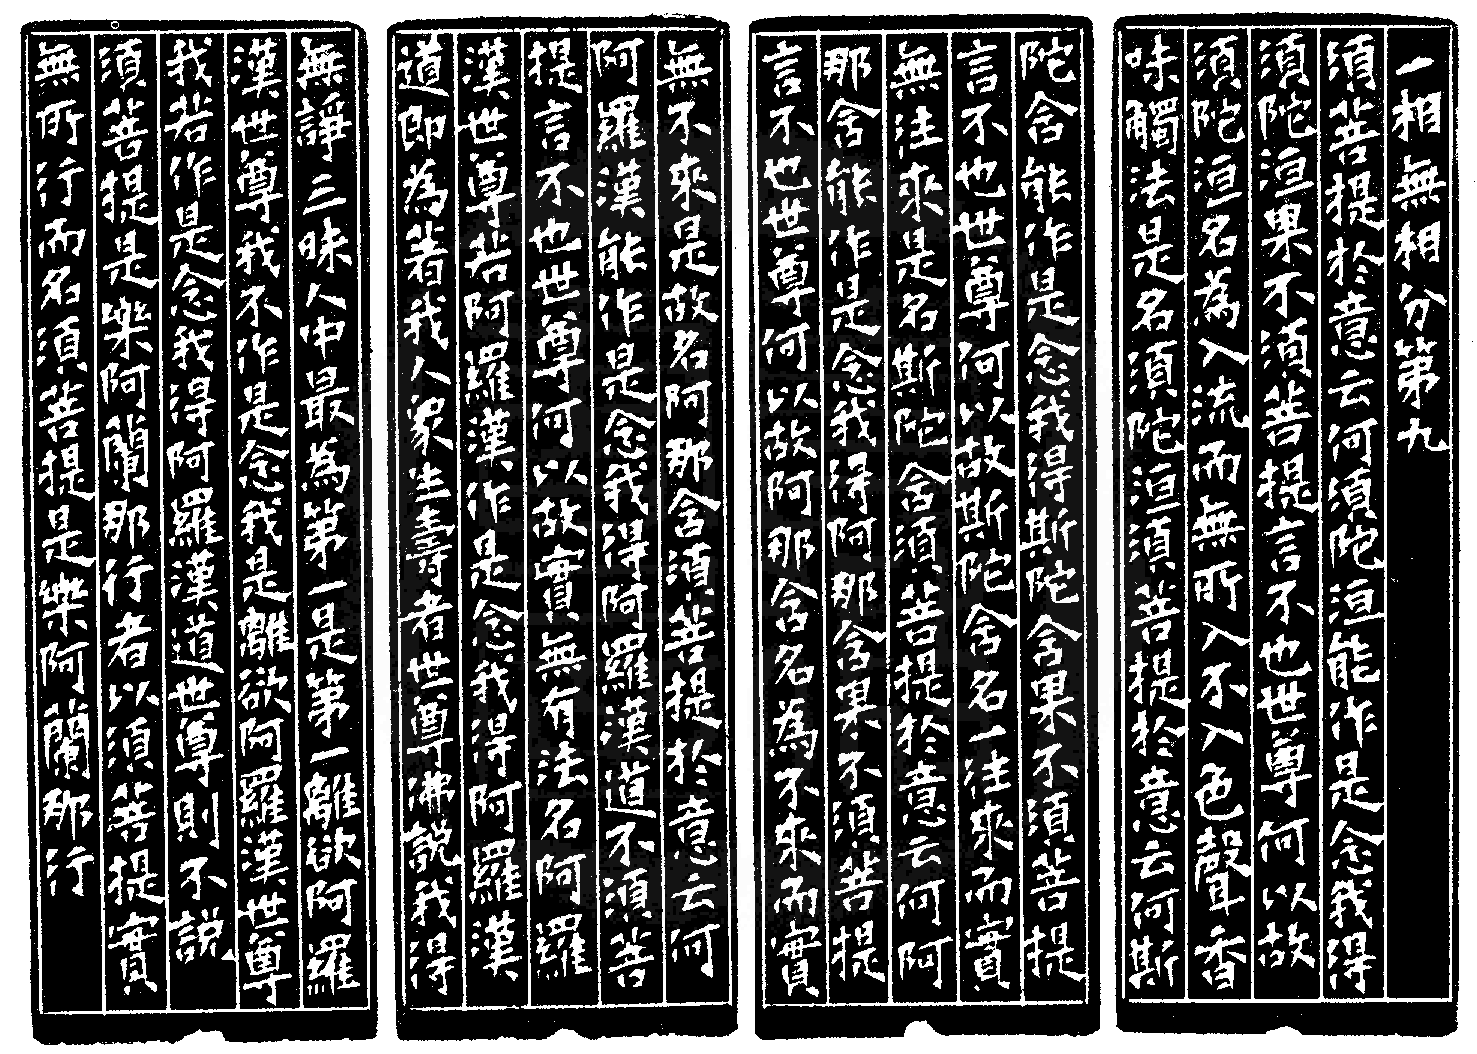 一相無相分第九
須菩提於意云何須陀洹能作是念我得
須陀洹果不須菩提言不也世尊何以故
須陀洹名為入流而無所入不入色聲香
味觸法是名須陀洹須菩提於意云何斯
陀含能作是念我得斯陀含果不須菩提
言不也世尊何以故斯陀含名一往來而實
無往來是名斯陀含須菩提於意云何阿
那含能作是念我得阿那含果不須菩提
言不也世尊何以故阿那含名為不來而實
無不來是故名阿那含須菩提於意云何
阿羅漢能作是念我得阿羅漢道不須菩
提言不也世尊何以故實無有法名阿羅
漢世尊若阿羅漢作是念我得阿羅漢
道即為著我人眾生壽者世尊佛說我得
無諍三昧人中最為第一是第一離欲阿羅
漢世尊我不作是念我是離欲阿羅漢世尊
我若作是念我得阿羅漢道世尊則不說
須菩提是樂阿蘭那行者以須菩提實
無所行而名須菩提是樂阿蘭那行